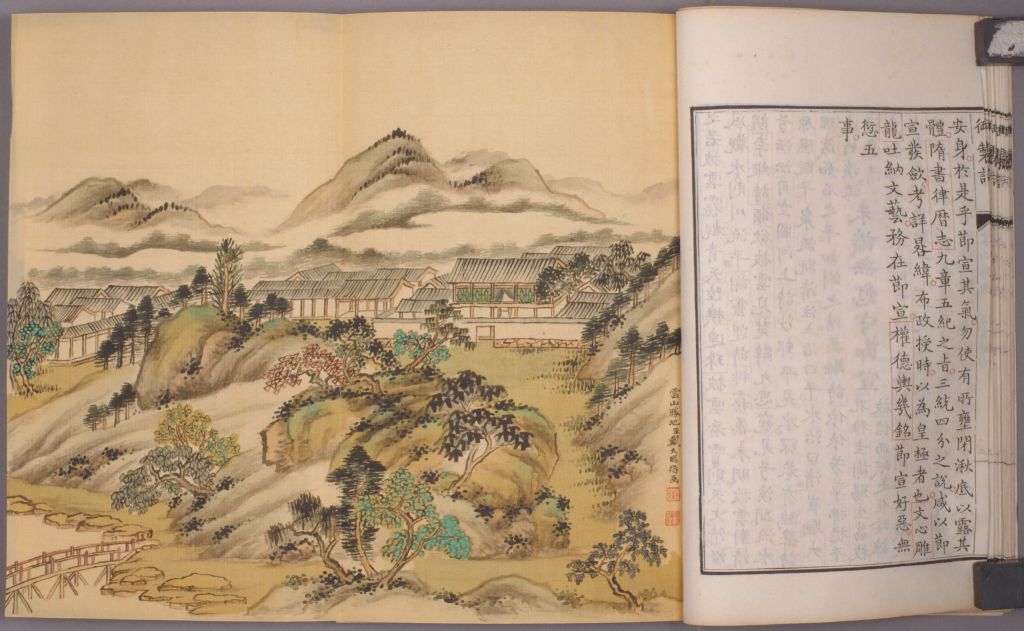 御製詩
安身於是乎節宣其氣勿使有所壅閉湫底以露其
體隋書律曆志九章五紀之旨三統四分之說咸以節
宣發歛考詳晷緯布政授時以為皇極者也文心雕
龍吐納文藝務在節宣權德輿几銘節宣好惡無
愆五
事
雲山勝地臣戴天瑞畫